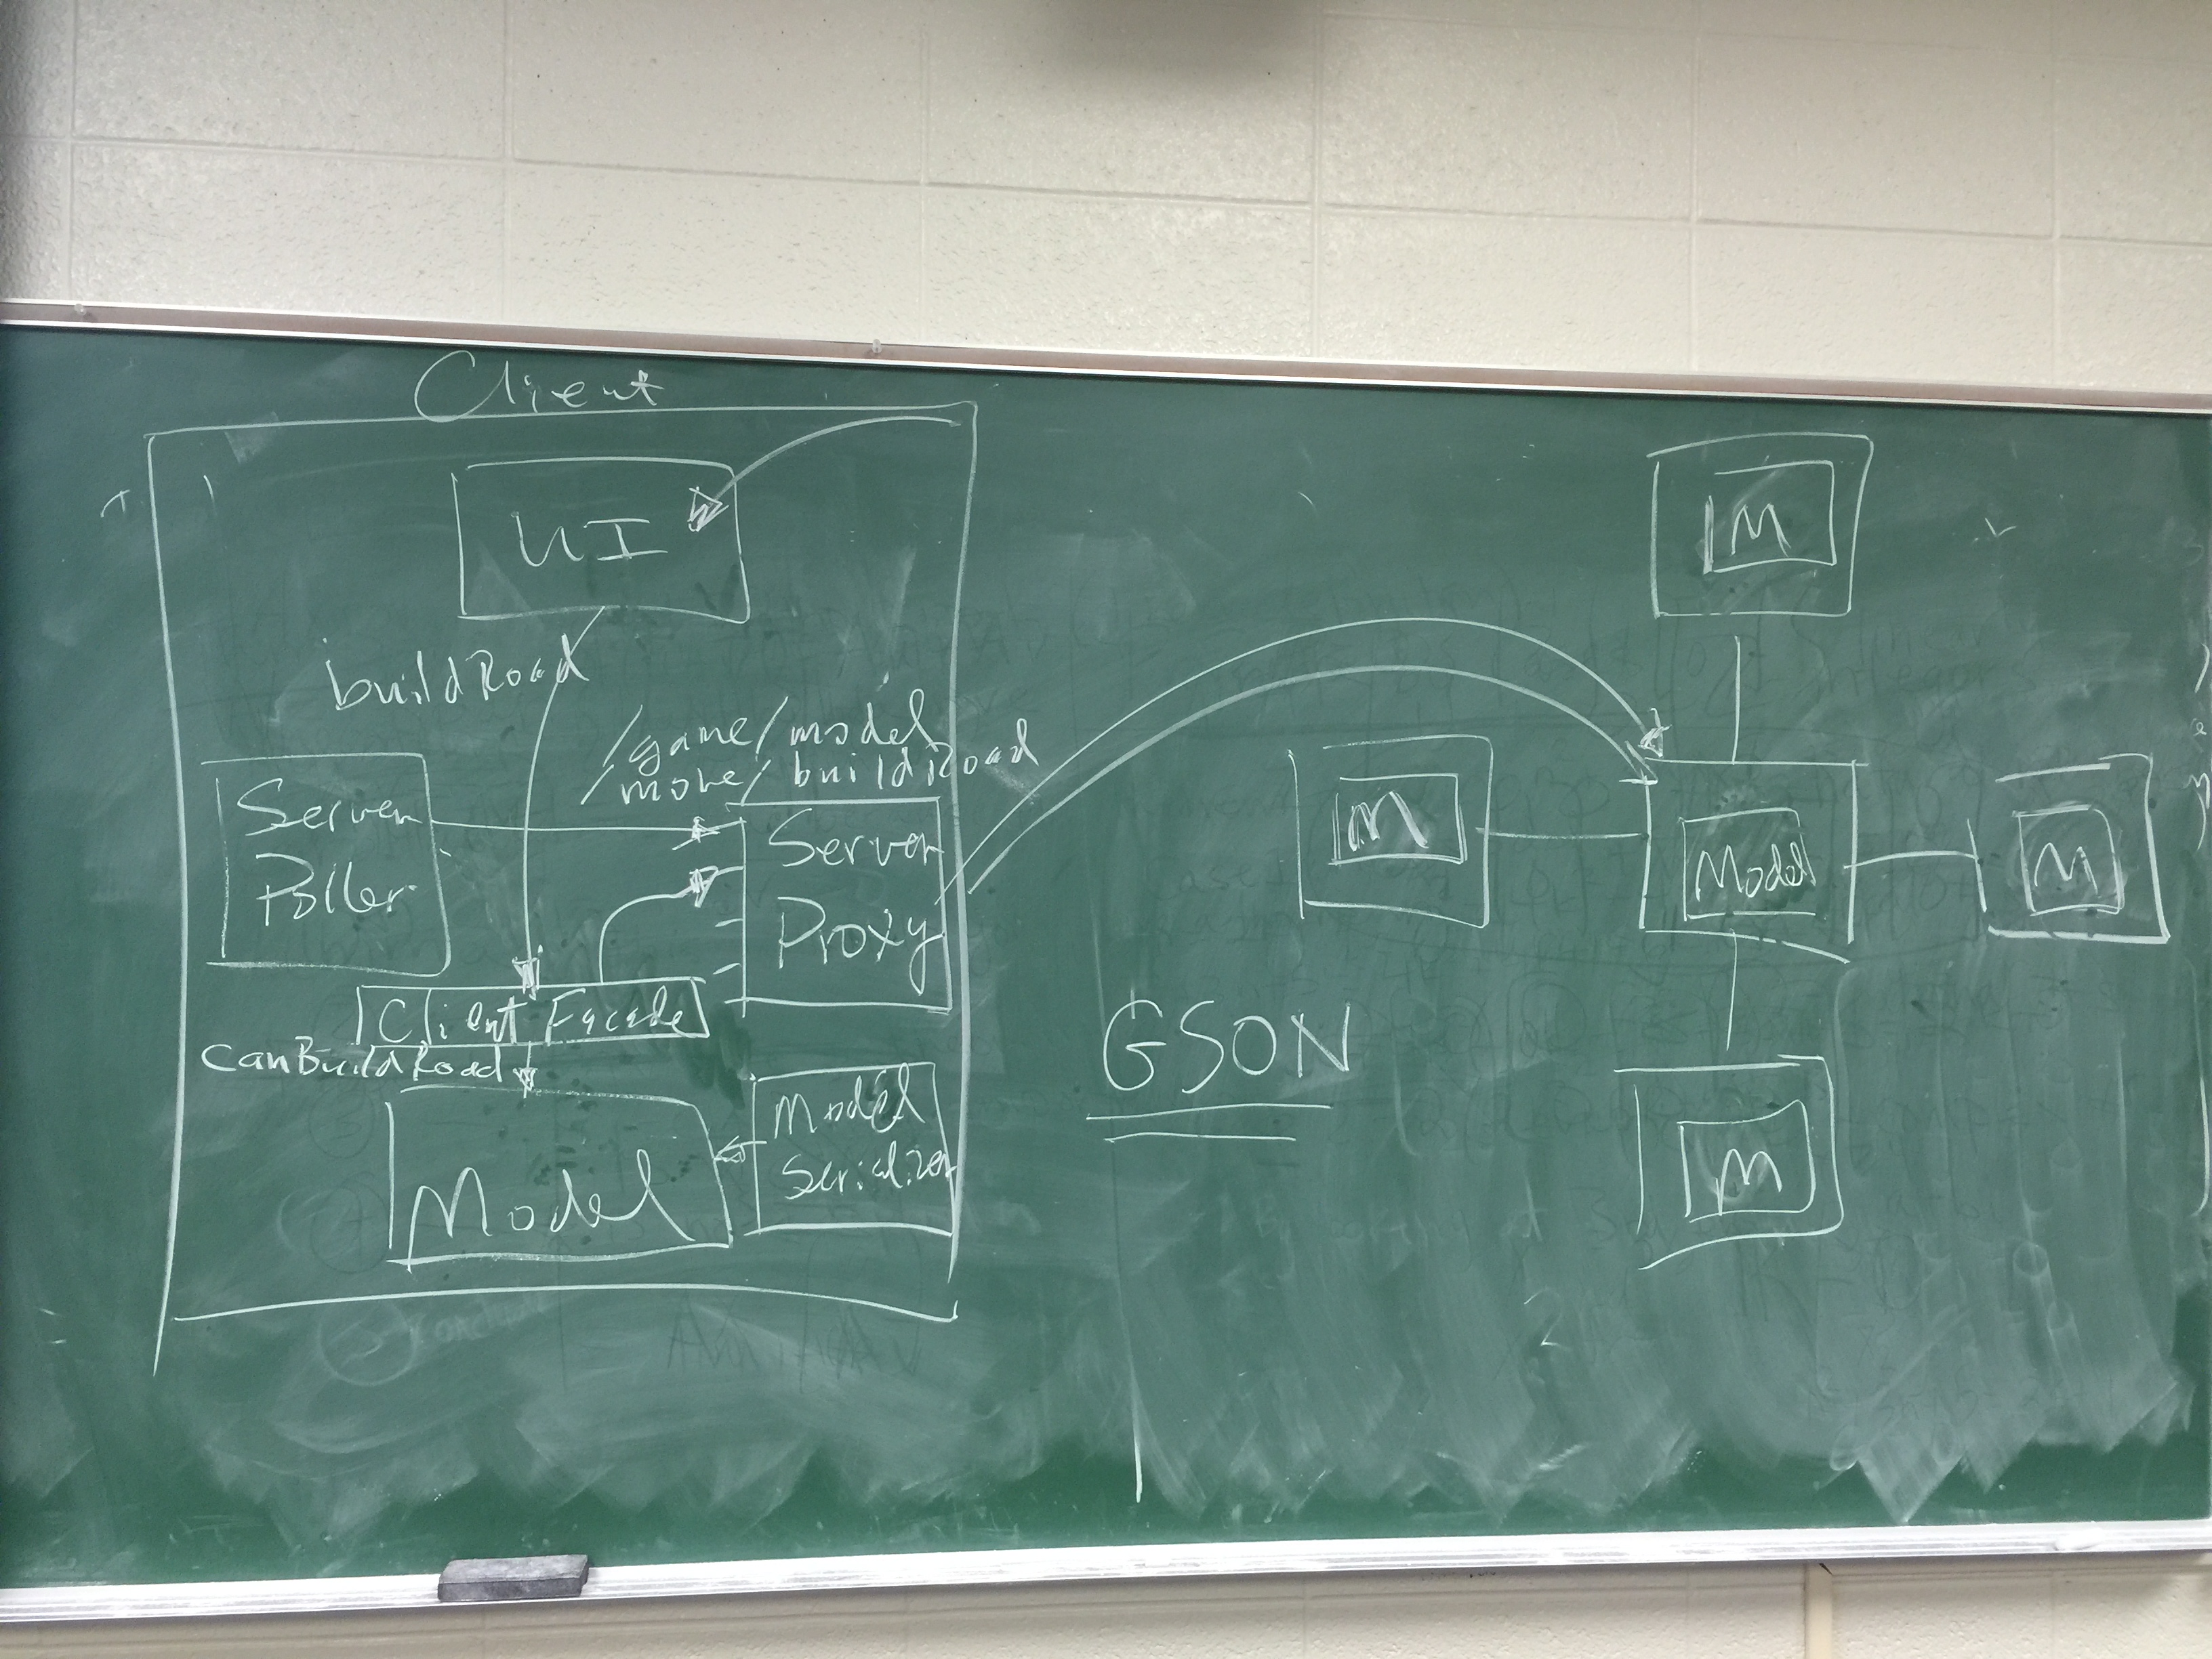 Client
UI
buildRoad
/game/model
/move/buildRoad
Server
Poller
Server
Proxy
Client Facade
canBuildRoad
Model
Model
Serializer
GSON
M
M
Model
M
M
2